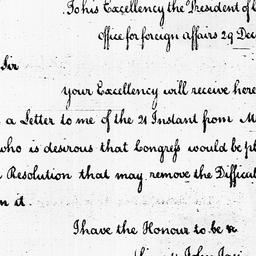 To his Excellency the President of
Office for foreign affairs 29 Dec
Sir
Your Excellency will receive here
a Letter to me of the 21 Instant from M
who is desirous that Congress would be pl
Resolution that may remove the Difficul
n it.
I have the Honour to be &
John Jay